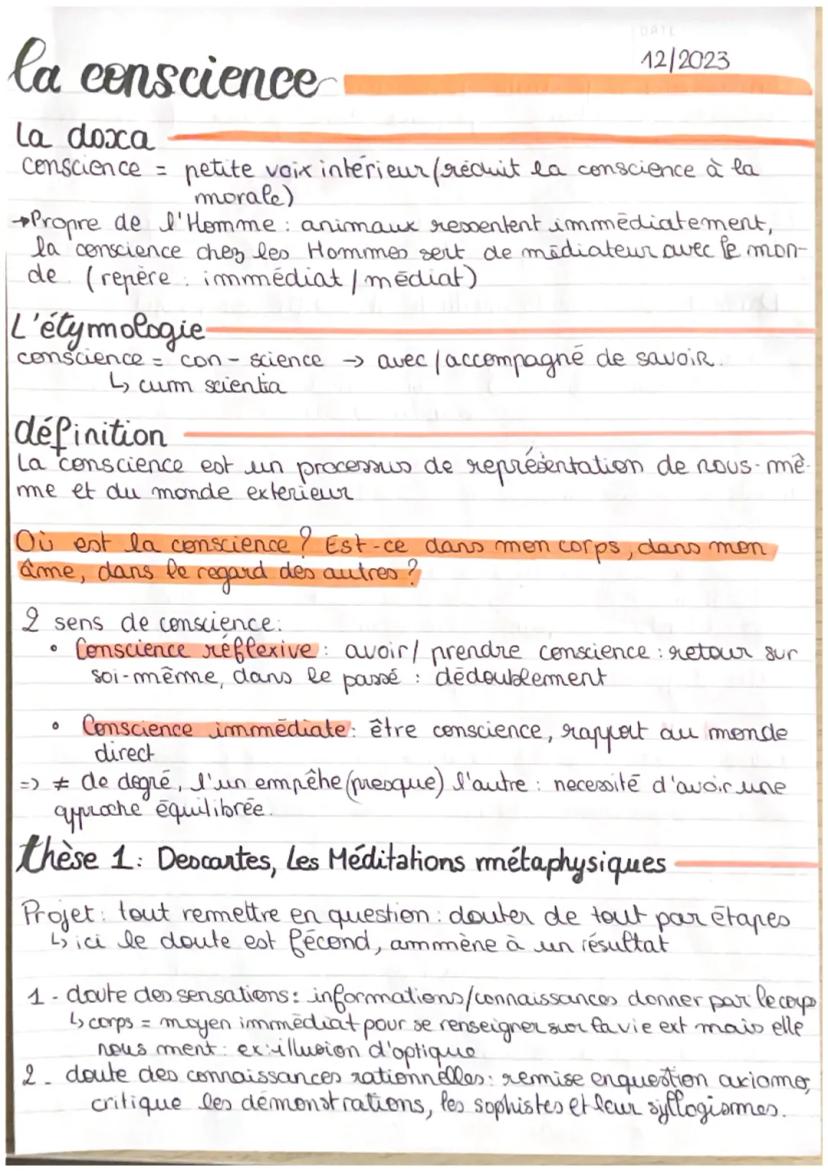 DATE
12/2023
la conscience
La doxa
conscience = petite voix intérieur (réduit la conscience à la
morale)
→Propre de l'Homme : animaux ressentent immédiatement,
la conscience chez les Hommes sert de médiateur avec le mon-
de (repère : immédiat / médiat)
L'étymologie
conscience = con - science → avec / accompagné de savoir.
↳ cum scientia
définition
La conscience est un processus de représentation de nous-mê-
me et du monde exterieur
Où est la conscience ? Est-ce dans mon corps, dans mon
âme, dans le regard des autres ?
2 sens de conscience:
• Conscience réflexive : avoir / prendre conscience : retour sur
soi-même, dans le passé : dédoublement
• Conscience immédiate : être conscience, rapport au monde
direct
=> ≠ de degré, l'un empêhe (presque) l'autre : necessité d'avoir une
approche équilibrée.
thèse 1: Descartes, Les Méditations métaphysiques
Projet : tout remettre en question : douter de tout par étapes
↳ ici le doute est fécond, ammène à un résultat
1 - doute des sensations : informations/connaissances donner par le corps
↳ corps = moyen immédiat pour se renseigner sur la vie ext mais elle
nous ment : ex : illusion d'optique
2 - doute des connaissances rationnelles : remise en question axiomes,
critique les démonstrations, les sophistes et leur syllogismes.